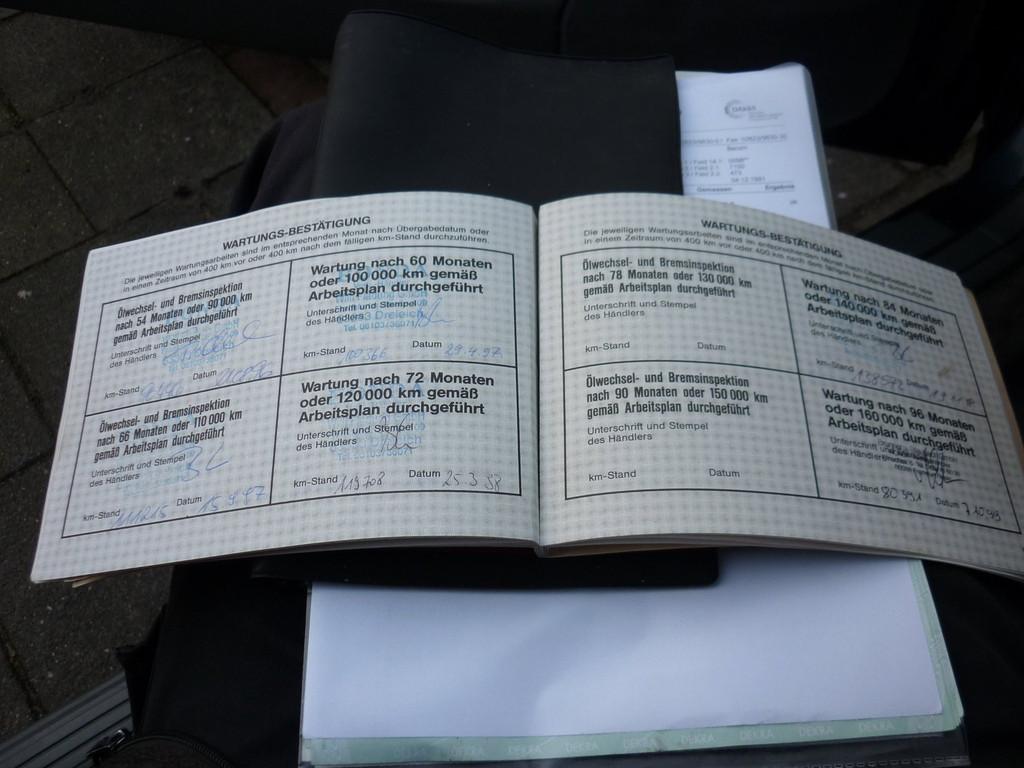 DEKRA
WARTUNGS-BESTÄTIGUNG
Die jeweiligen Wartungsarbeiten sind im entsprechenden Monat nach Übergabedatum oder
in einem Zeitraum von 400 km vor oder 400 km nach dem fälligen km-Stand durchzuführen.
Ölwechsel- und Bremsinspektion
nach 54 Monaten oder 90 000 km
gemäß Arbeitsplan durchgeführt
Unterschrift und Stempel
des Händlers
km-Stand Datum
Wartung nach 60 Monaten
oder 100 000 km gemäß
Arbeitsplan durchgeführt
Unterschrift und Stempel
des Händlers
Dreieich
Tel. 06103/36071
km-Stand 100366 Datum 29.4.97
Ölwechsel- und Bremsinspektion
nach 66 Monaten oder 110 000 km
gemäß Arbeitsplan durchgeführt
Unterschrift und Stempel
des Händlers
km-Stand 111215 Datum 15.9.97
Wartung nach 72 Monaten
oder 120 000 km gemäß
Arbeitsplan durchgeführt
Unterschrift und Stempel
des Händlers
km-Stand 119708 Datum 25.3.98
WARTUNGS-BESTÄTIGUNG
Die jeweiligen Wartungsarbeiten sind im entsprechenden Monat nach Übergabedatum oder
in einem Zeitraum von 400 km vor oder 400 km nach dem fälligen km-Stand durchzuführen.
Ölwechsel- und Bremsinspektion
nach 78 Monaten oder 130 000 km
gemäß Arbeitsplan durchgeführt
Unterschrift und Stempel
des Händlers
km-Stand Datum
Wartung nach 84 Monaten
oder 140 000 km gemäß
Arbeitsplan durchgeführt
Unterschrift und Stempel
des Händlers
km-Stand 138572 Datum
Ölwechsel- und Bremsinspektion
nach 90 Monaten oder 150 000 km
gemäß Arbeitsplan durchgeführt
Unterschrift und Stempel
des Händlers
km-Stand Datum
Wartung nach 96 Monaten
oder 160 000 km gemäß
Arbeitsplan durchgeführt
Unterschrift und Stempel
des Händlers
km-Stand 80391 Datum 7.10.99
Gemessen Ergebnis
DEKRA DEKRA DEKRA DEKRA